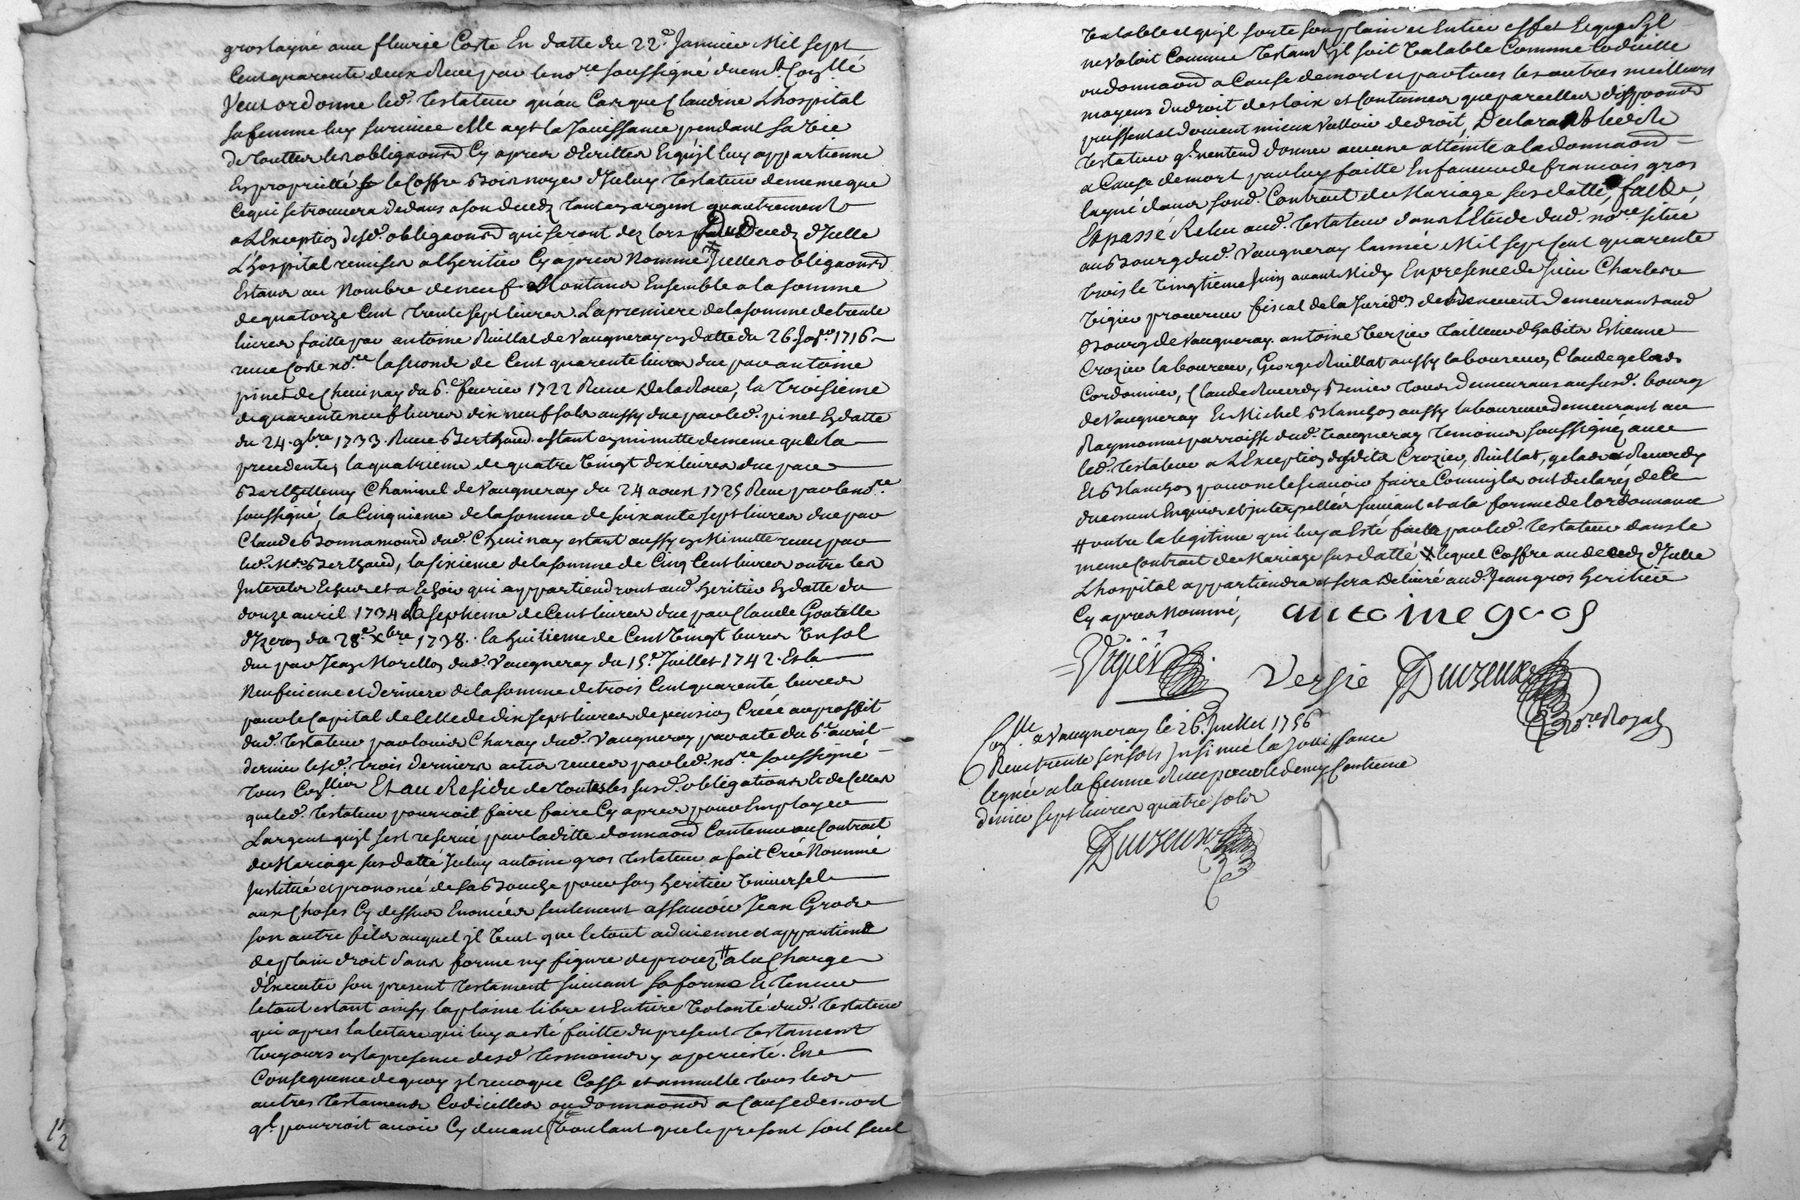 gros layné avec fleurie Coste En datte du 22e. Janvier Mil sept
Cent quarente deux Receu par le nore. soussigné duemt. Corllé
Veut ordonne led. testateur qu'au Cas que Claudine L'hospital
sa femme luy survive Elle ayt la Jouissance pendant sa vie
de toutles les obligaonsd Cy apres d'Ecrittes Et qu'jl luy appartienne
En proprietté le Coffre Bois noyer d'Iceluy testateur de meme que
Ce qui se trouvera dedans a son deceds tant en argent qu'autrement
a L'Exception desd. obligaonsd qui seront dez lors Du Deceds d'Icelle
L'hospital remises a l'heritier Cy apres Nommé Icelles obligaonsd
Estans au Nombre de neuf Montans Ensemble a la somme
de quatorze Cent trente sept livres La premiere de la somme de trente
livres faitte par antoine Ruillat de Vaugneray en datte du 26. 1716
receue Coste nore. la seconde de Cent quarente livres due par antoine
pinet de Chevinay du 6e. fevrier 1722 Receue Delaroue, la troisieme
de quarente neuf livres dix neuf sols aussy due par led. pinet En datte
du 24. 9bre 1733. Receue Berthaud estant en minutte de meme que la
precedente, la quatrieme de quatre vingt dix livres due par
Barthellemy Chaninel de Vaugneray du 24 aoust 1725 Receue par le nore.
soussigné, la Cinquieme de la somme de soixante sept livres due par
Claude Bonnamourd dud. Chevinay estant aussy en Minutte receue par
led. Me. Berthaud, la sixieme de la somme de Cinq Cent livres outre les
Interets Echus et a Echoir qui appartiendront aud. heritier En datte du
douze avril 1734 la septieme de Cent livres due par Claude Goutelle
d'yzeron du 28e. Xbre 1738. la huitieme de Cent vingt livres Un sol
due par Jean Morellon dud. Vaugneray du 15e. Juillet 1742. Et la
Neufvieme et derniere de la somme de trois Cent quarente livres
pour le Capital de Celle de dix sept livres de pension Créée au proffit
dud. testateur par Louis Charay dud. Vaugneray par acte du 6e. avril
dernier lesd. trois derniers actes receus par led. nore. soussigné
tous Corllés Et au Residu de toutes les susd. obligations Et de Celles
que led. testateur pourroit faire faire Cy apres pour Employer
L'argent qu'jl s'est reservé par laditte donnaond Contenue au Contrait
de Mariage susdatté Iceluy antoine gros testateur a fait Créé Nommé
Institué et prononcé de sa Bouche pour son heritier Universel
aux Choses Cy dessus Enoncées seulement assavoir Jean Gros
son autre fils auquel jl Veut que le tout advienne et appartiene
de plain droit sans forme ny figure de procez # a la Charge
d'Executer son present testament suivant sa forme Et teneur
le tout estant ainsy la plaine libre et Entiere volonté dud. testateur
qui apres la lecture qui luy a esté faitte du present testament
toujours en la presence desd. tesmoins y a percisté. En
Consequence de quoy jl revoque Casse et annulle tous les
autres testamens Codicilles ou donnaonsd a Cause de mort
ql. pourroit avoir Cy devant Voulant que le present soit seul
Valable et qu'jl sorte son plain et Entier effet Et que s'jl
ne Valoit Comme testamt. jl soit Valable Comme Codicille
ou donnaond a Cause de mort et par tous les autres meilleurs
moyens du droit des loix et Coutumes que pareilles disposond
puissent et doivent mieux Valloir de droit, Declarant led.
testateur ql. n'entend donner aucune atteinte a la donnaond
a Cause de mort par luy faitte En faveur de francois gros
layné dans sond. Contrait de Mariage susdatté, fait
Et passé Releu aud. testateur dans L'Etude dud. nore. sittué
au Bourg dud. Vaugneray l'année Mil sept Cent quarente
trois le Vingtieme Juin avant Midy En presence de sieur Charles
Vigier procureur fiscal de la Juridon de Benevent demeurant aud
Bourg de Vaugneray. antoine Verzier tailleur d'habits Estienne
Crozier laboureur, George Ruillat aussy laboureur, Claude gelas
Cordonnier, Claude Reverdy Benier tous demeurans au susd. bourg
de Vaugneray Et Michel Blanchon aussy laboureur demeurant au
Raymond parroisse dud. Vaugneray temoins soussignéz avec
led. testateur a L'Exception desdits Crozier, Ruillat, gelas Reverdy
Et Blanchon pour ne le scavoir faire Comme jls ont declaréz de Ce
duement Enquis et jnterpellés suivant et a la forme de l'ordonnance
# outre la legitime qui luy a Esté faitte par led. testateur dans le
meme Contrait de Mariage susdatté # lequel Coffre au deceds d'Icelle
L'hospital appartiendra et sera delivré aud. Jean gros heritier
Cy apres Nommé,
antoine gros
Vigier
Versie
Duvzeux
nore. Royal
Corllé a Vaugneray le 26. Juillet 1756
Receu trente six sols Insinué la Jouissance
leguée a la femme Receu pour le demy Centieme
denier sept livres quatre sols
Duvzeux